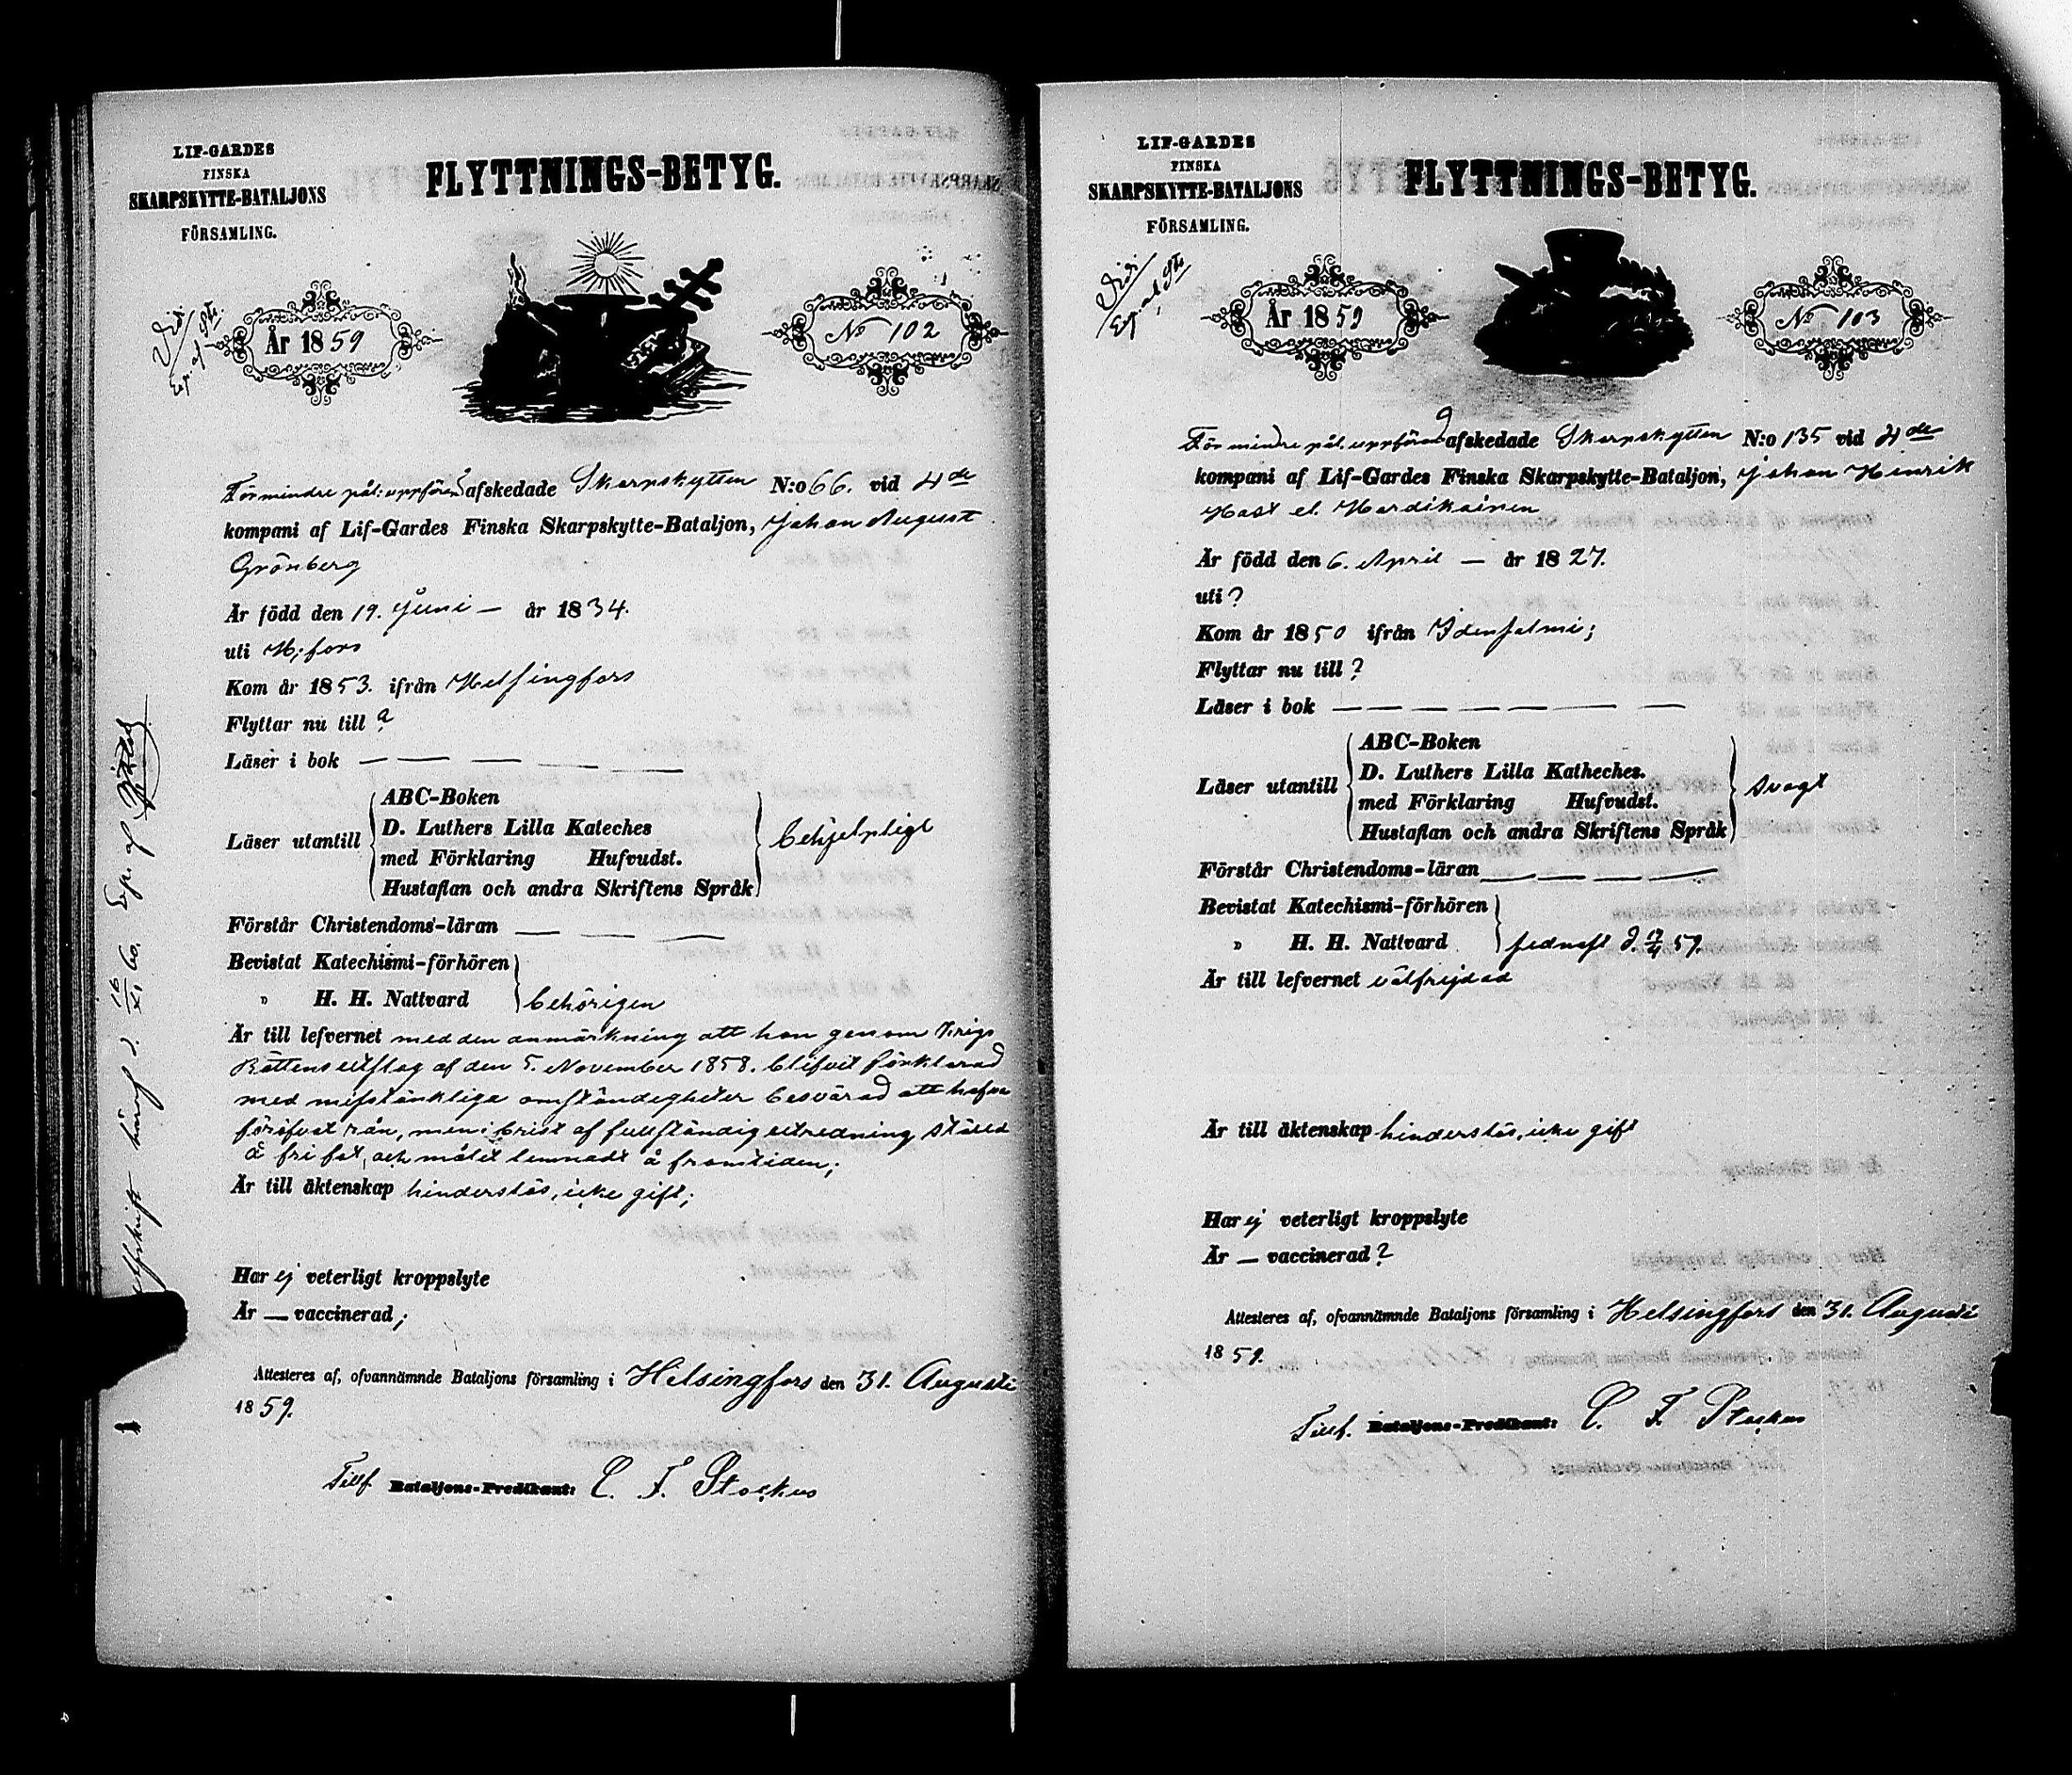 LIF-GARDES
FINSKA
SKARPSKYTTE-BATALJONS
FÖRSAMLING.
FLYTTNINGS-BETYG.
Vidi
Exp. af Sts.
År 1859
No 102
För mindre pål. uppförd afskedade Skarpskytten N:o 66. vid 4de
kompani af Lif-Gardes Finska Skarpskytte-Bataljon, Johan August
Grönberg
Är född den 19. Juni — år 1834.
uti H:fors
Kom år 1853. ifrån Helsingfors
Flyttar nu till ?
Läser i bok — — — — —
Läser utantill
ABC-Boken
D. Luthers Lilla Kateches
med Förklaring Hufvudst.
Hustaflan och andra Skriftens Språk
behjelpligt
Förstår Christendoms-läran — — —
Bevistat Katechismi-förhören
" H. H. Nattvard
behörigen
Är till lefvernet med den anmärkning att han genom Krigs
Rättens utslag af den 5. November 1858. blifvit förklarad
med misstänkliga omständigheter besvärad att hafva
föröfvat rån, men i brist af fullständig utredning stäld
å fri fot, och målet lemnadt å framtiden;
Är till äktenskap hinderslös, icke gift;
Har ej veterligt kroppslyte
Är — vaccinerad;
Attesteres af, ofvannämnde Bataljons församling i Helsingfors den 31. Augusti
1859.
Tillf. Bataljons-Predikant: C. F. Stockus
afskrift häraf d. 16/XI 60. Exp. af
LIF-GARDES
FINSKA
SKARPSKYTTE-BATALJONS
FÖRSAMLING.
FLYTTNINGS-BETYG.
Vidi
Exp. af Sts
År 1859
No 103
För mindre pål. uppförd afskedade Skarpskytten N:o 135 vid 4de
kompani af Lif-Gardes Finska Skarpskytte-Bataljon, Johan Hinrik
Hast el. Hardikainen
Är född den 6. April — år 1827.
uti ?
Kom år 1850 ifrån Idensalmi;
Flyttar nu till ?
Läser i bok — — — — — — —
Läser utantill
ABC-Boken
D. Luthers Lilla Katheches.
med Förklaring Hufvudst.
Hustaflan och andra Skriftens Språk
svagt
Förstår Christendoms-läran — — — —
Bevistat Katechismi-förhören
" H. H. Nattvard
sednast d. 17/4 59.
Är till lefvernet välfrejdad
Är till äktenskap hinderslös, icke gift
Har ej veterligt kroppslyte
Är — vaccinerad?
Attesteres af, ofvannämnde Bataljons församling i Helsingfors den 31. Augusti
1859.
Tillf. Bataljons-Predikant: C. F. Stockus